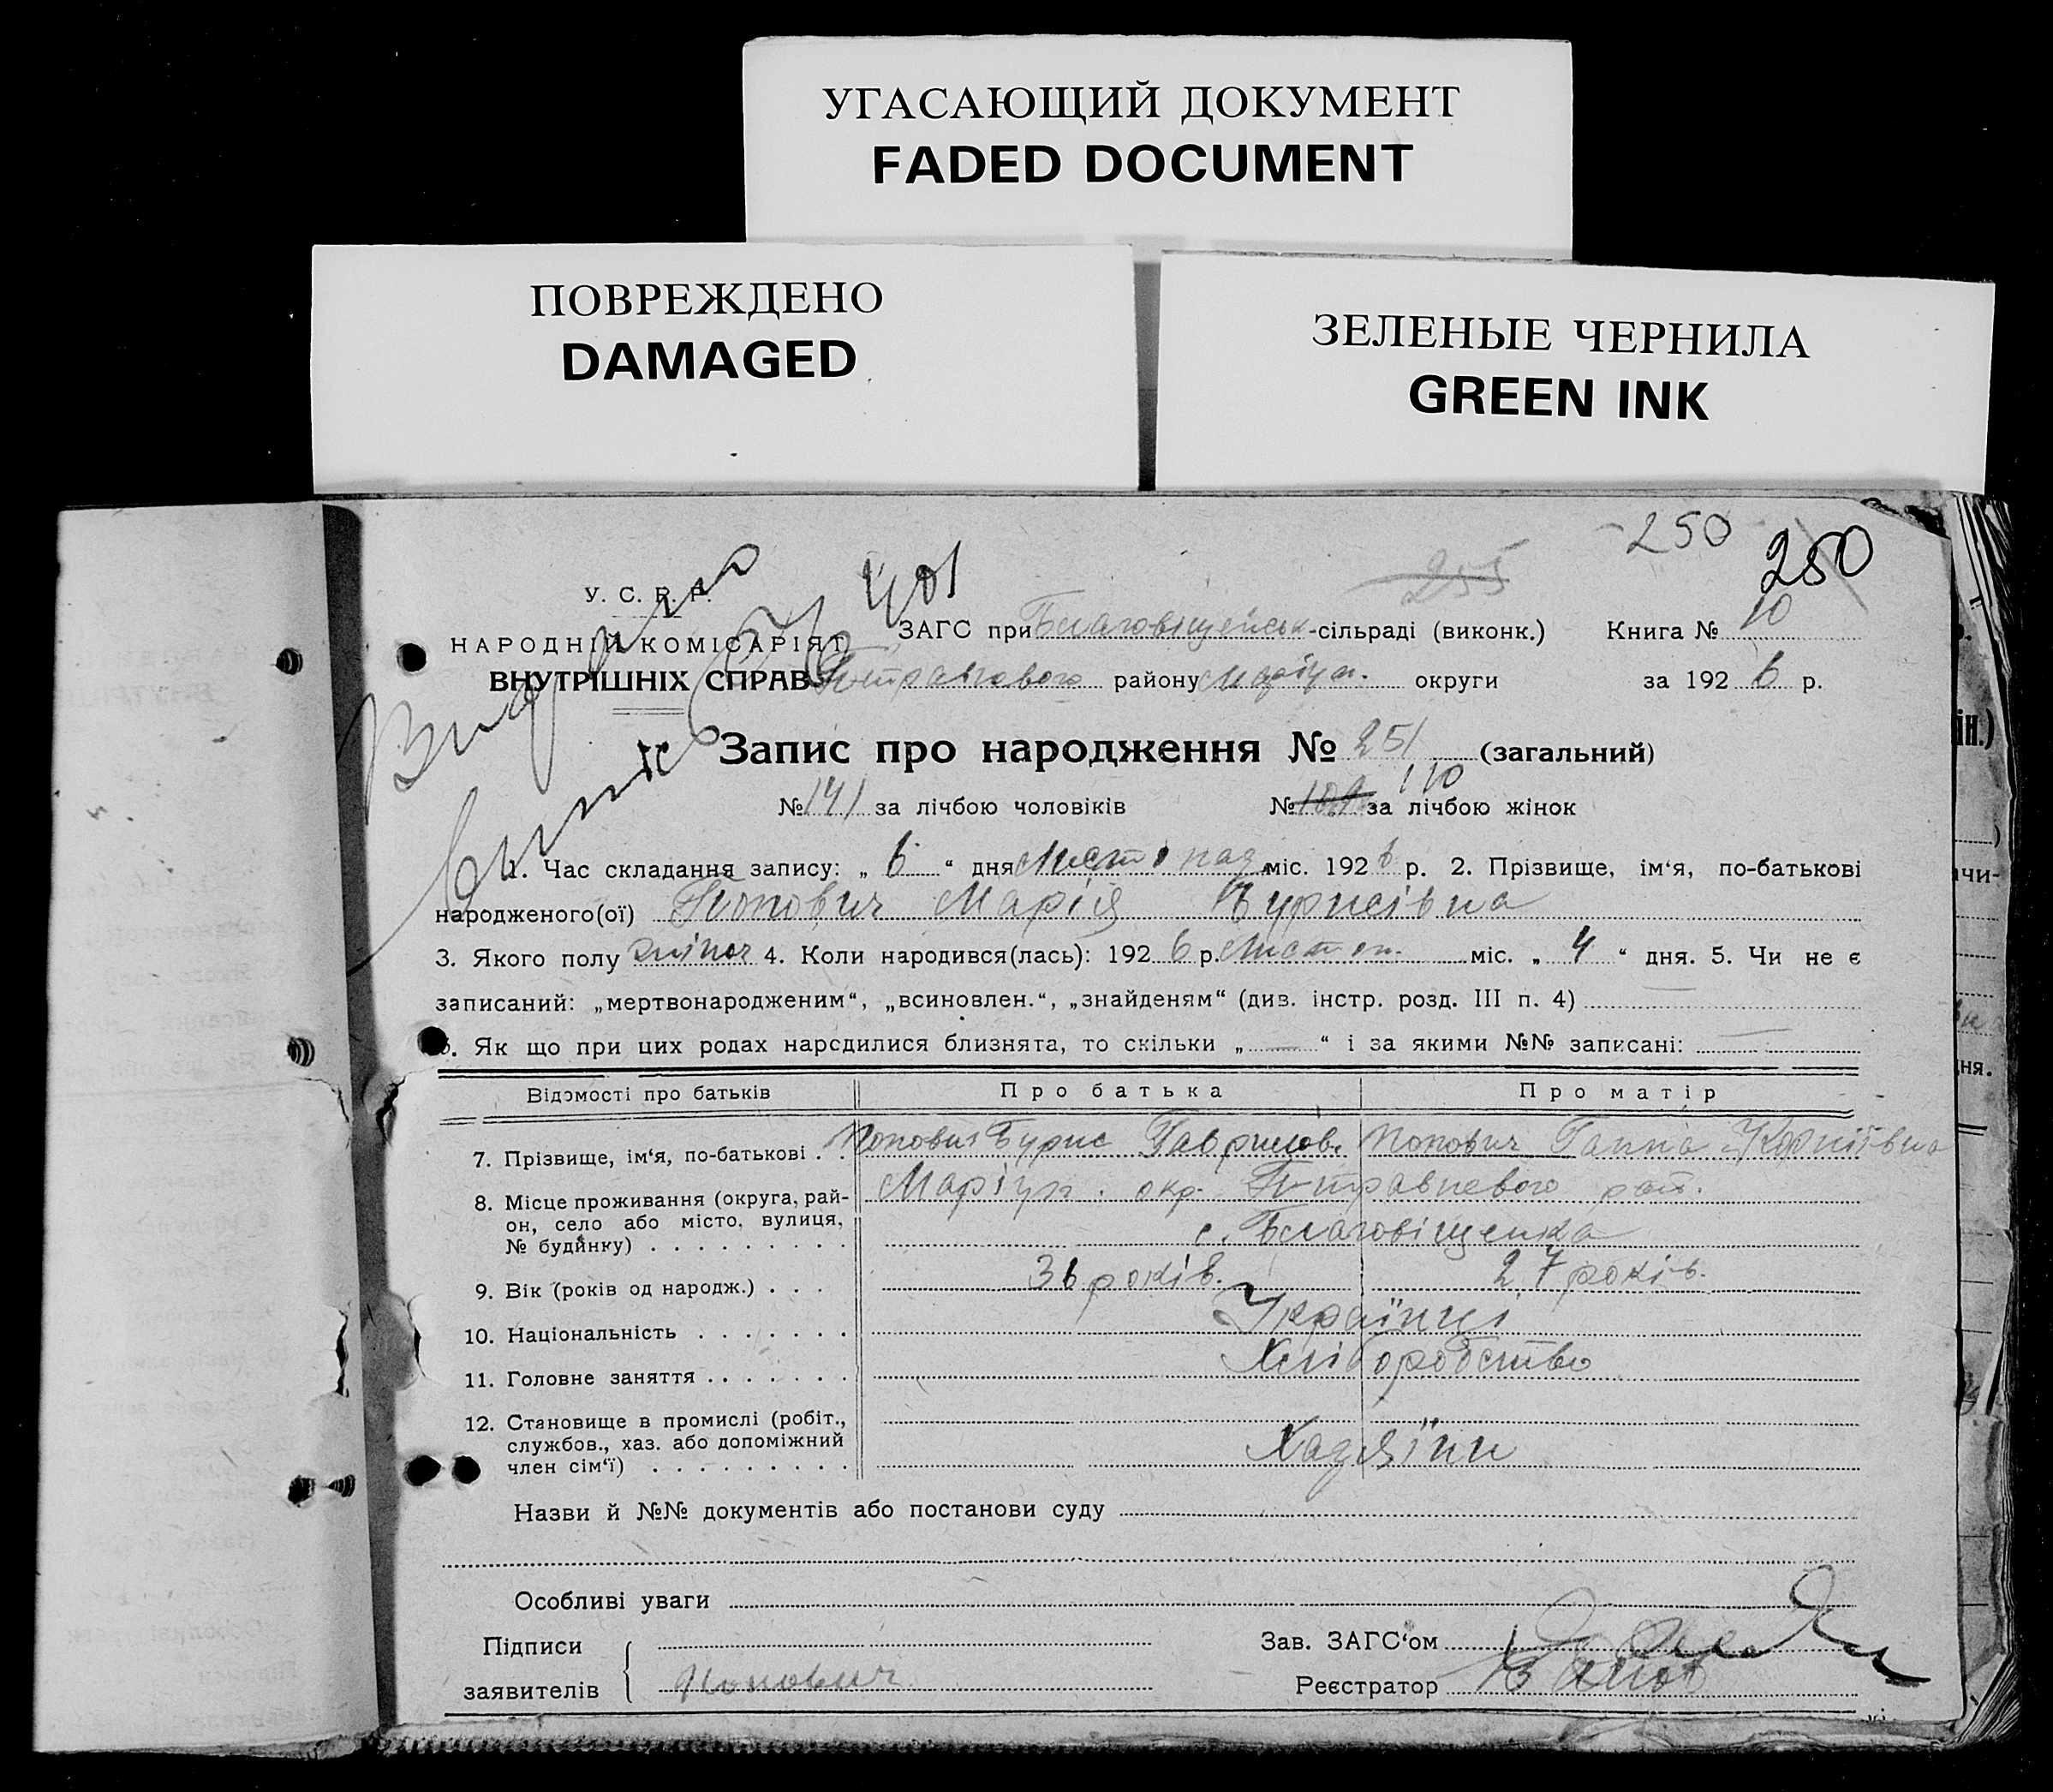 УГАСАЮЩИЙ ДОКУМЕНТ
FADED DOCUMENT
ПОВРЕЖДЕНО
DAMAGED
ЗЕЛЕНЫЕ ЧЕРНИЛА
GREEN INK
250
255
250
У. С. Р. Р.
НАРОДНІЙ КОМІСАРІЯТ
ВНУТРІШНІХ СПРАВ
401
ЗАГС при Благовіщенськ-сільраді (виконк.) Книга № 10
району Маріуп. округи за 1926 р.
Запис про народження № 251 (загальний)
№ 141 за лічбою чоловіків № 109 110 за лічбою жінок
1. Час складання запису: „ 6 “ дня Листопад міс. 1926 р. 2. Прізвище, ім‘я, по-батькові
народженого(ої) Попович Марія Бурисівна
3. Якого полу жіноч 4. Коли народився(лась): 1926 р. Листоп. міс. „ 4 “ дня. 5. Чи не є
записаний: „мертвонародженим“, „всиновлен.“, „знайденям“ (див. інстр. розд. III п. 4) —
6. Як що при цих родах народилися близнята, то скільки „ — “ і за якими №№ записані: —
Відомості про батьків Про батька Про матір
7. Прізвище, ім‘я, по-батькові . . Попович Бурис Гаврилов. Попович Ганна Корніївна
8. Місце проживання (округа, рай-
он, село або місто, вулиця,
№ будинку) . . . . . . . . .
Маріуп. окр. рай.
с. Благовіщенка
9. Вік (років од народж.) . . . 36 років. 27 років.
10. Національність . . . . . . . Українці
11. Головне заняття . . . . . . . Хліборобство
12. Становище в промислі (робіт.,
службов., хаз. або допоміжний
член сім‘ї) . . . . . . . . .
Хазяїни
Назви й №№ документів або постанови суду
Особливі уваги
Підписи
заявителів
Попович
Зав. ЗАГС‘ом
Реєстратор